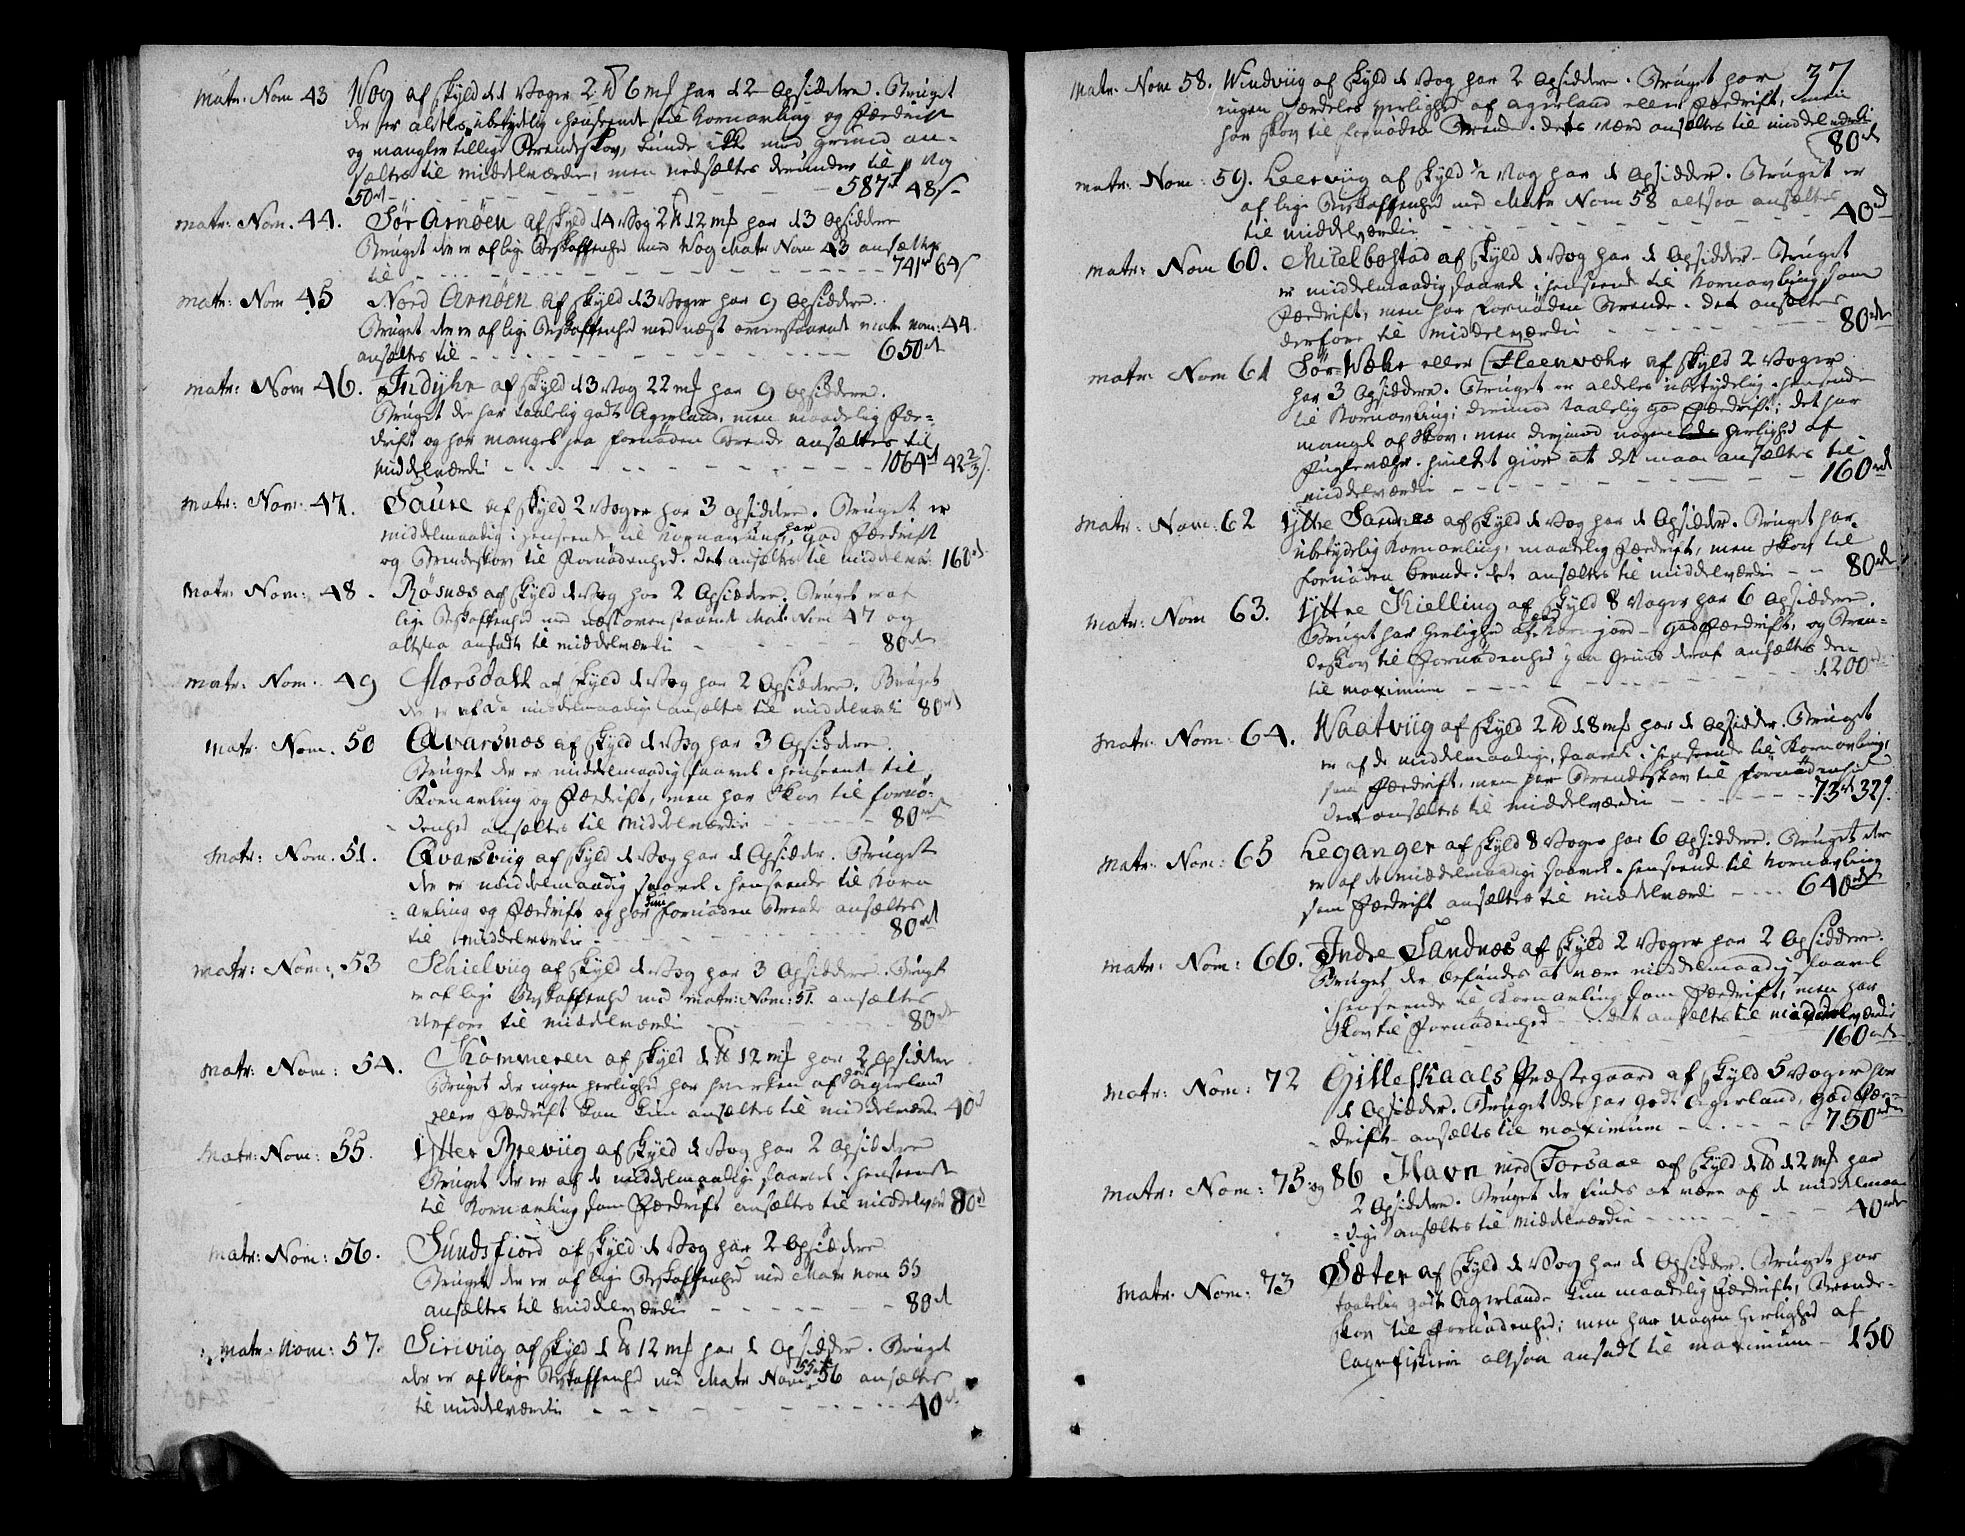 Matr: Nom 43 Wog af Skyld 11 Woger 2 ℔ 6 mk har 12 Opsiddere. Bruget
der er aldeles ubetydelig i henseende til Kornavling og Fædrift
og mangler tillige Brendeskov, kunde ikke med grund an-
sættes til middelværdie, men nedsættes derunder til p. Vog
50 rd - - - - 587 rd 48 s -
Matr: Nom. 44. Sør Arnøen af Skyld 14 Vog 2 ℔ 12 mk har 13 Opsiddere
Bruget der er af lige Beskaffenhed med Wog Matr Nom 43 ansættes
til - - - - 741 rd 64 s
Matr: Nom 45 Nord Arnøen af Skyld 13 Voger har 9 Opsiddere.
Bruget der er af lige Beskaffenhed med næst ovenstaaende Matr nom: 44.
ansættes til - - - - 650 rd
Matr: Nom 46. Indyhr af Skyld 13 Vog 22 mk har 9 Opsiddere.
Bruget der har taalelig godt Agerland, men maadelig Fæ-
drift og har mangel paa fornøden Brende ansættes til
Middelværdie - - - - 1064 rd 42 2/3 s.
Matr: Nom: 47. Saure af Skyld 2 Voger har 3 Opsiddere. Bruget er
middelmaadig i henseende til Kornavling, har god Fædrift
og Brendeskov til Fornødenhed. Det ansættes til middelvær: 160 rd
Matr: Nom: 48. Røsnæs af Skyld 1 Vog har 2 Opsiddere. Bruget er af
lige Beskaffenhed med næstovenstaaende Mat: Nom 47 og
altsaa ansadt til middelværdie - - - 80 rd
Matr: Nom. 49 Morsdall af Skyld 1 Vog har 2 Opsiddere. Bruget
der er af de middelmaadige ansættes til middelværdi 80 rd
Matr. Nom. 50 Qvarsnæs af Skyld 1 Vog har 3 Opsiddere.
Bruget der er middelmaadig saavel i henseende til
Kornavling og Fædrift, men har Skov til fornø-
denhed ansættes til Middelværdie - - - 80 rd
Matr: Nom. 51. Qvarsviig af Skyld 1 Vog har 1 Opsidder. Bruget
der er middelmaadig saavel i henseende til Korn
avling og Fædrift og har kun fornøden Brende ansættes
til Middelværdie - - - - 80 rd
Matr: Nom: 53 Schielviig af Skyld 1 Vog har 3 Opsiddere. Bruget
er af lige Beskaffenhed med Matr: Nom: 51. ansættes
derfore til middelværdie - - - 80 rd
Matr: Nom: 54. Kommeren af Skyld 1 ℔ 12 mk har 2 Opsiddere
Bruget der ingen herlighed har hverken af god Agerland
eller Fædrift kan kun ansættes til middelværdie 40 rd
Matr: Nom: 55. Ytter Breviig af Skyld 1 Vog har 2 Opsiddere
Bruget der er af de middelmaadige saavel i henseende
til Kornavling som Fædrift ansættes til middelværd 80 rd
Matr: Nom: 56. Sundsfiord af Skyld 1 Vog har 2 Opsiddere
Bruget der er af lige Beskaffenhed med Matr nom 55
ansættes til Middelværdie - - - 80 rd
Matr. Nom: 57. Siriviig af Skyld 1 ℔ 12 mk har 1 Opsidder. Bruget
der er af lige Beskaffenhed med Matr Nom 55 & 56 ansættes
til middelværdie - - - - 40 rd.
37
Matr: Nom 58. Windviig af Skyld 1 Vog har 2 Opsiddere. Bruget har
ingen særdeles herlighed af agerland eller Fædrift, men
har Skov til fornøden Brende. dets værd ansættes til middelværdi
80 rd
Matr: Nom: 59. Leerviig af Skyld ½ Vog har 1 Opsidder. Bruget er
af lige Beskaffenhed med Matr Nom 58 altsaa ansættes
til middelværdie - - - - 40 rd
Matr: Nom 60. Mielbostad af Skyld 1 Vog har 1 Opsidder. Bruget
er middelmaadig saavel i henseende til Kornavling som
Fædrift, men har Fornøden Brende. det ansættes
derfore til middelværdie - - - 80 rd
Matr: Nom 61 Sør-Wæhr eller Fleenvæhr af Skyld 2 Voger
har 3 Opsiddere. Bruget er aldeles ubetydelig i henseende
til Kornavling; derimod taalelig god Fædrift; det har
mangel af Skov, men derimod nogen herlighed af
Fuglevæhr. hvilket giør at det maae ansættes til
middelværdie - - - - 160 rd
Matr: Nom: 62 Yttre Sandnes af Skyld 1 Vog har 1 Opsidder. Bruget har
ubetydelig Kornavling, maadelig Fædrift, men Skov til
fornøden brende. det ansættes til middelværdie - - 80 rd
Matr: Nom 63. Yttre Kielling af Skyld 8 Voger har 6 Opsiddere.
Bruget har herlighed af god Kornjord - god Fædrift, og Bren-
deskov til Fornødenhed paa Grund deraf ansættes den
til maximum - - - - 1200 rd
Matr: Nom: 64. Waatviig af Skyld 2 ℔ 18 mk har 1 Opsidder. Bruget
er af de middelmaadige, saavel i henseende til Kornavling,
som Fædrift, men har Brendeskov til Fornødenhed
det ansættes til middelværdie - - - 73 rd 32 s.
Matr: Nom: 65 Leganger af Skyld 8 Voger har 6 Opsiddere. Bruget der
er af de middelmaadige saavel i henseende til Kornavling
som Fædrift ansættes til middelværdi - - 640 rd
Matr: Nom: 66. Indre Sandnæs af Skyld 2 Voger har 2 Opsiddere.
Bruget der befindes at være middelmaadig saavel
i henseende til Kornavling som Fædrift, men har
Skov til Fornødenhed - - det ansættes til middelværdie
160 rd
Matr: Nom: 72 Gilleskaals Præstegaard af Skyld 5 Voger har
1 Opsidder. Bruget der har godt Agerland, god Fæ-
drift ansættes til maximum - - - 750 rd
Matr: Nom: 75 og 86 Havn med Forsaae af Skyld 1 ℔ 12 mk har
2 Opsiddere. Bruget der findes at være af de middelmaa-
dige ansættes til middelværdie - - - 40 rd
Matr: Nom: 73 Sæter af Skyld 1 Vog har 1 Opsidder. Bruget har
taalelig godt Agerlande kun maadelig Fædrift, Brende-
skov til Fornødenhed; men har nogen herlighed af
laxefiskerie altsaa ansadt til maximum - 150